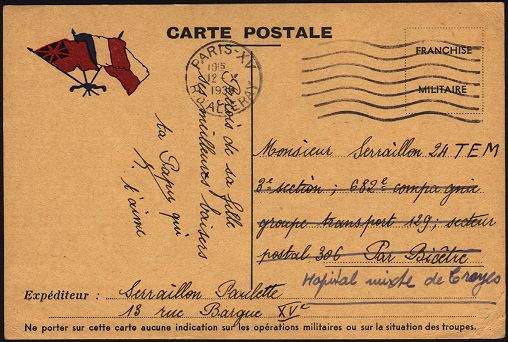 CARTE POSTALE
FRANCHISE
MILITAIRE
PARIS-XV
1915
12 - X
1939
R. D'ALLERAY
reçois de sa fille
ses meilleurs baisers
ta Papu qui
t'aime
Monsieur Serraillon 24 T.E.M
3e section ; 682e compagnie
groupe transport 129 ; secteur
postal 306 Par Bicêtre
Hopital mixte de Troyes
Expéditeur : Serraillon Paulette
13 rue Bargue XVe
Ne porter sur cette carte aucune indication sur les opérations militaires ou sur la situation des troupes.